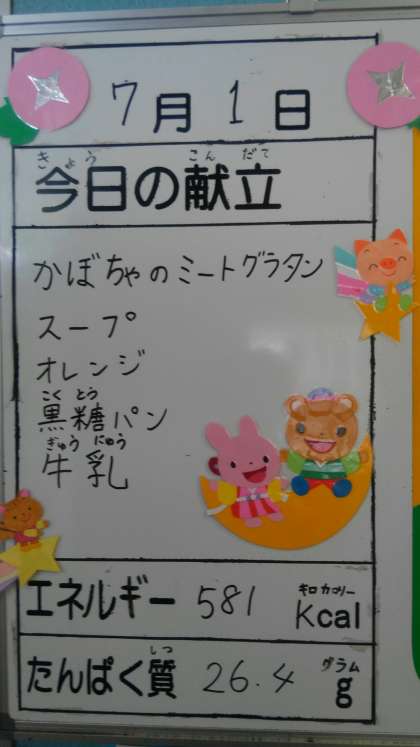 7月1日
きょう こんだて
今日の献立
かぼちゃのミートグラタン
スープ
オレンジ
こくとう
黒糖パン
ぎゅうにゅう
牛乳
キロカロリー
エネルギー 581 Kcal
しつ グラム
たんぱく質 26.4 g